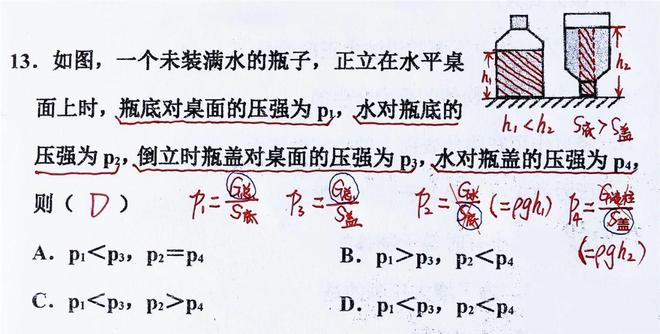 13. 如图，一个未装满水的瓶子，正立在水平桌
面上时，瓶底对桌面的压强为 p₁，水对瓶底的
压强为 p₂，倒立时瓶盖对桌面的压强为 p₃，水对瓶盖的压强为 p₄，
则（ D ）
h₁ h₂
h₁<h₂ S底>S盖
p₁=G总/S底 p₃=G总/S盖 p₂=G水/S底 (=ρgh₁) p₄=G液柱/S盖
(=ρgh₂)
A. p₁<p₃，p₂=p₄ B. p₁>p₃，p₂<p₄
C. p₁<p₃，p₂>p₄ D. p₁<p₃，p₂<p₄